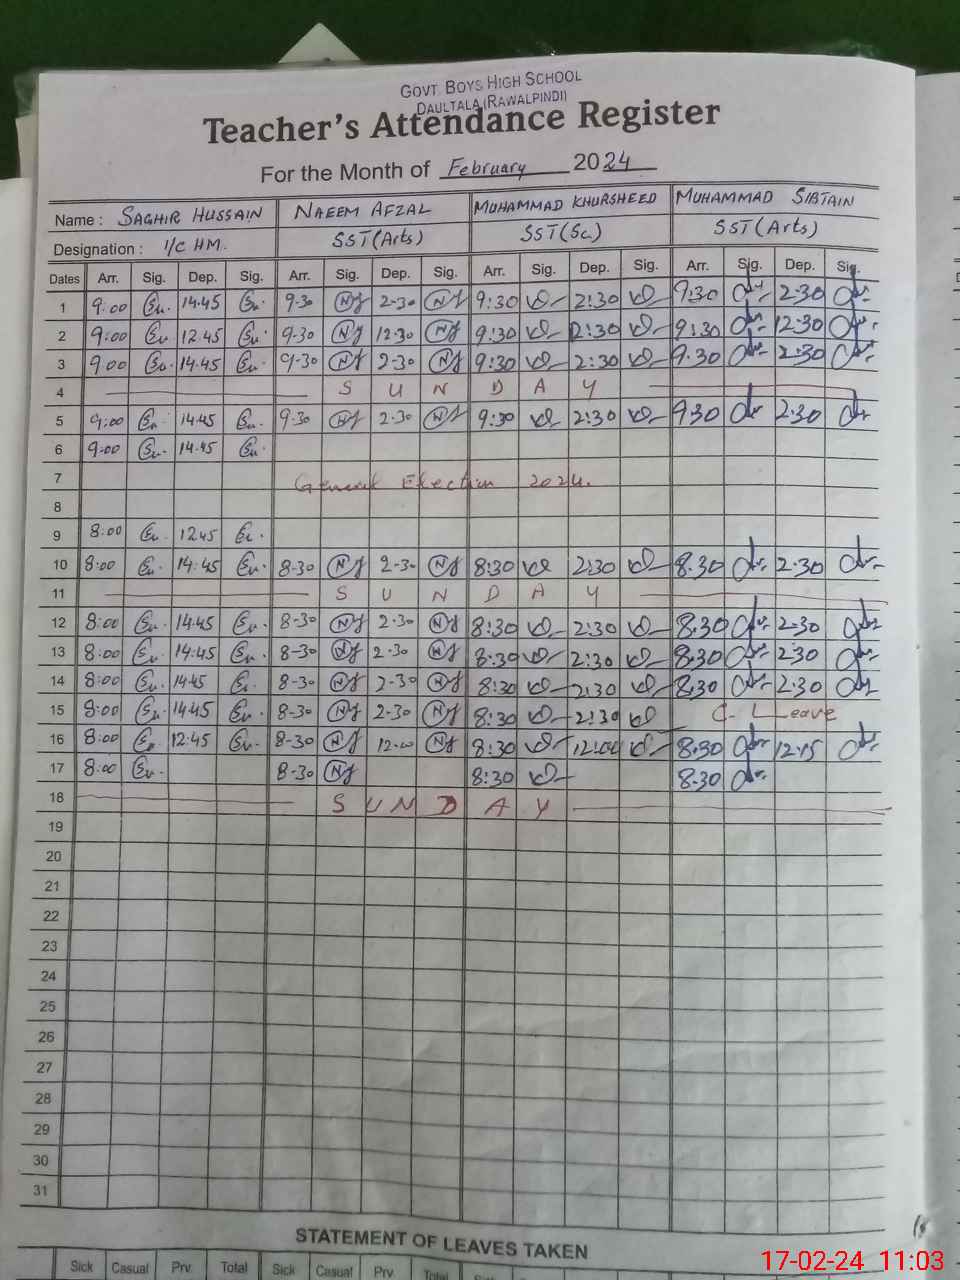 GOVT. BOYS HIGH SCHOOL
DAULTALA (RAWALPINDI)
Teacher's Attendance Register
For the Month of February 2024
Name : SAGHIR HUSSAIN NAEEM AFZAL MUHAMMAD KHURSHEED MUHAMMAD SIBTAIN
Designation : I/C HM. SST(Arts) SST(Sc) SST(Arts)
Dates Arr. Sig. Dep. Sig. Arr. Sig. Dep. Sig. Arr. Sig. Dep. Sig. Arr. Sig. Dep. Sig.
1 9:00 14.45 9-30 2-30 9:30 2:30 9:30 2:30
2 9:00 12.45 9-30 12-30 9:30 12:30 9:30 12:30
3 9.00 14.45 9-30 2-30 9:30 2:30 9.30 2:30
4 S U N D A Y
5 9:00 14.45 9-30 2-30 9:30 2:30 9.30 2:30
6 9:00 14.45
7 General Election 2024.
8
9 8:00 12.45
10 8:00 14:45 8-30 2-30 8:30 2:30 8.30 2:30
11 S U N D A Y
12 8:00 14.45 8-30 2-30 8:30 2:30 8.30 2:30
13 8:00 14:45 8-30 2-30 8:30 2:30 8.30 2:30
14 8:00 14.45 8-30 2-30 8:30 2:30 8:30 2:30
15 8:00 14.45 8-30 2-30 8:30 2:30 C. Leave
16 8:00 12:45 8-30 12.00 8:30 12:00 8:30 12:15
17 8:00 8-30 8:30 8.30
18 S U N D A Y
19
20
21
22
23
24
25
26
27
28
29
30
31
STATEMENT OF LEAVES TAKEN
Sick Casual Prv. Total Sick Casual Prv. Total
17-02-24 11:03